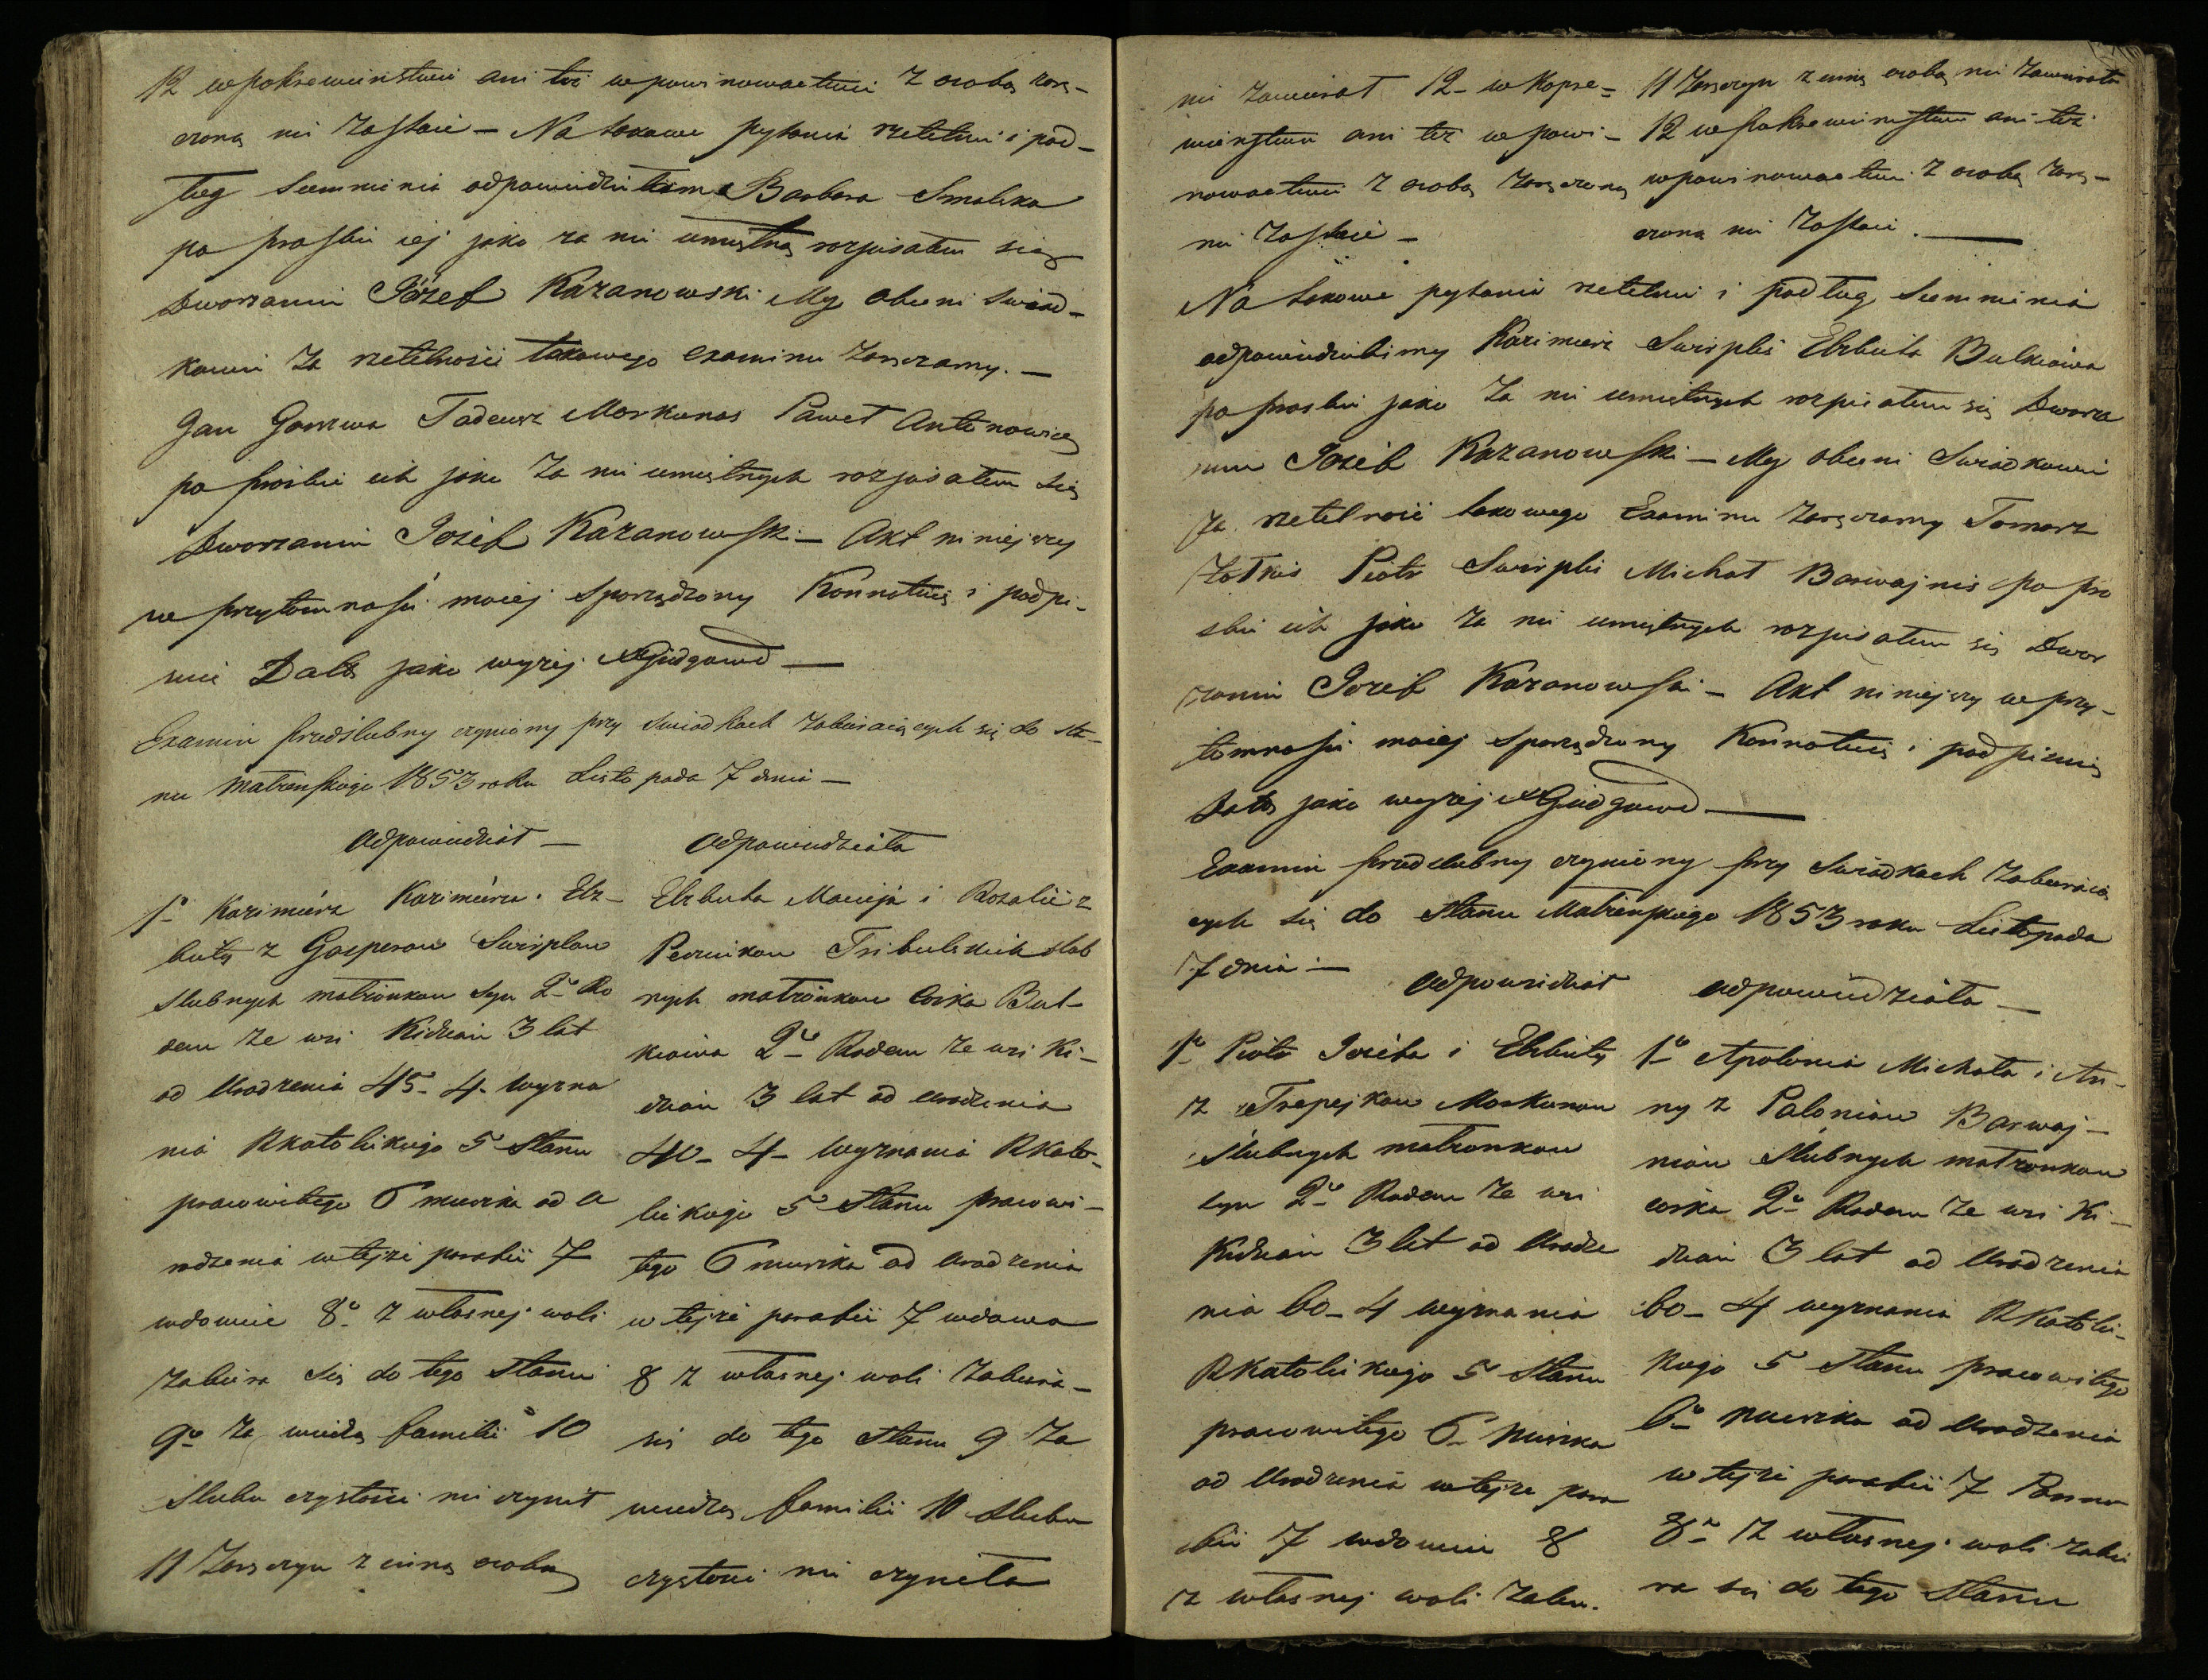 12 w pokrewienstwie ani też w powinowactwie z osobą zarę-
czoną nie zostaie – Na takowe pytania rzetelnie i pod-
ług sumnienia odpowiedziałam Barbara Smalska
po prosbie iej jako za nie umiętną rozpisałem się
Dworzanin Józef Kazanowski My obecni swiad-
kowie za rzetelności takowego examinu zaręczamy. –
Jan Tadeusz Morkunas Paweł Antonowicz
po prosbie ich jako za nie umiętnych rozpisałem się
Dworzanin Jozef Kazanowski – Akt niniejszy
w przytomnosci moiej sporządzony Konnotuię i podpi-
suię Data jako wyżej
Examin przedslubny czyniony przy swiadkach zabieraiących się do sta-
nu małżenskiego 1853 roku Listopada 7 dnia –
Odpowiedział – Odpowiedziała
1o Kazimierz Kazimierza Elz-
biety z Gasperow Swirplow
slubnych małżonkow syn 2o Ro
dem ze wsi Kidzian 3 lat
od Urodzenia 45 – 4 – wyzna
nia RKatolickiego 5 Stanu
pracowitego 6 mieszka od U
rodzenia w tejże parafii 7
wdowiec 8o z własnej woli
zabiera się do tego Stanu
9o za wiedzą familii 10
Slubu czystości nie czynił
11 Zaręczyn z inną osobą
Elzbieta Macieja i Rozalii z
Peciukow slub
nych małżonkow corka
2o Rodem ze wsi Ki-
dzian 3 lat od Urodzenia
40 – 4 – Wyznania RKato-
lickiego 5 Stanu pracowi-
tego 6 mieszka od Urodzenia
w tejże parafii 7 wdowa
8 z własnej woli zabiera –
się do tego Stanu 9 Za
wiedzą familii 10 Slubu
czystości nie czyniła
nie zawierał 12 – w Kopre=
wienstwu ani też w powi-
nowactwie z osobą zaręczoną
nie zostaie –
11 Zaręczyn z inną osobą nie zawierała
12 w pokrewienstwie ani też
w powinowactwie z osobą zarę-
czoną nie zostaie. –
Na takowe pytania rzetelnie i podług sumnienia
odpowiedzielismy Kazimierz Swirplis Elzbieta
po prosbie jako za nie umiętnych rozpisałem się Dworza
nin Jozef Kazanowski – My obecni Swiadkowie
za rzetelności takowego Examinu zaręczamy Tomasz
Piotr Swirplis Michał Barwajnis po pro
sbie ich jako za nie umiętnych rozpisałem się Dwor
zanin Jozef Kazanowski – Akt niniejszy w przy-
tomnosci moiej sporządzony Konnotuię i podpisuię
Data jako wyżej
Examin przedslubny czyniony przy Swiadkach zabieraią
cych się do Stanu Małżenskiego 1853 roku Listopada
7 dnia –
Odpowiedział Odpowiedziała –
1o Piotr Jozefa i Elzbiety
z Trepejkow Morkunow
Slubnych małżonkow
syn 2o Rodem ze wsi
Kidzian 3 lat od Urodze
nia 60 – 4 wyznania
RKatolickiego 5 Stanu
pracowitego 6 – Mieszka
od Urodzenia w tejże para
fii 7 wdowiec 8
z własnej woli zabie-
1o Apolonia Michała i An-
ny z Paloniow Barwaj-
niow Slubnych małżonkow
corka 2o Rodem ze wsi Ki-
dzian 3 lat od Urodzenia
60 – 4 wyznania RKatolic-
kiego 5 Stanu pracowitego
6o Mieszka od Urodzenia
w tejże parafii 7 Panna
8o z własnej woli zabie
ra się do tego Stanu